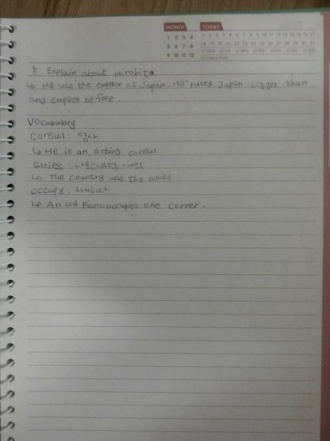 MONTH TODAY
1 2 3 4
5 6 7 8
9 10 11 12
Explain about Hirohito
↳ He was the emperor of Japan. He rules Japan bigger than
any empire before.
Vocabulary
Consul : 영사
↳ He is an acting consul
Allies :
↳ The country was the allies.
Occupy : 차지하다
↳ An old piano occupies one corner.